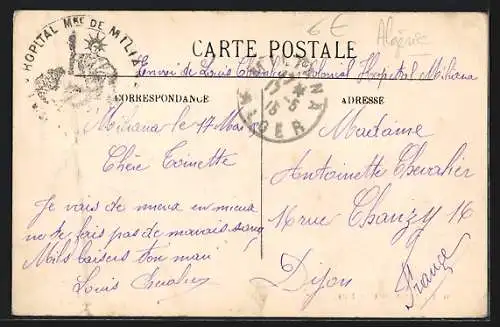 6 E
Algérie
HOPITAL Mre DE MILIANA
CARTE POSTALE
Envoi de Louis Chevalier Colonial Hopital Miliana
MILIANA
17-5
15
ALGER
CORRESPONDANCE
ADRESSE
Miliana le 17 Mai
Chère Toinette
Je vais de mieux en mieux
ne te fais pas de mauvais sang
Mils baisers ton mari
Louis Chevalier
Madame
Antoinette Chevalier
16 rue Chanzy 16
Dijon
France